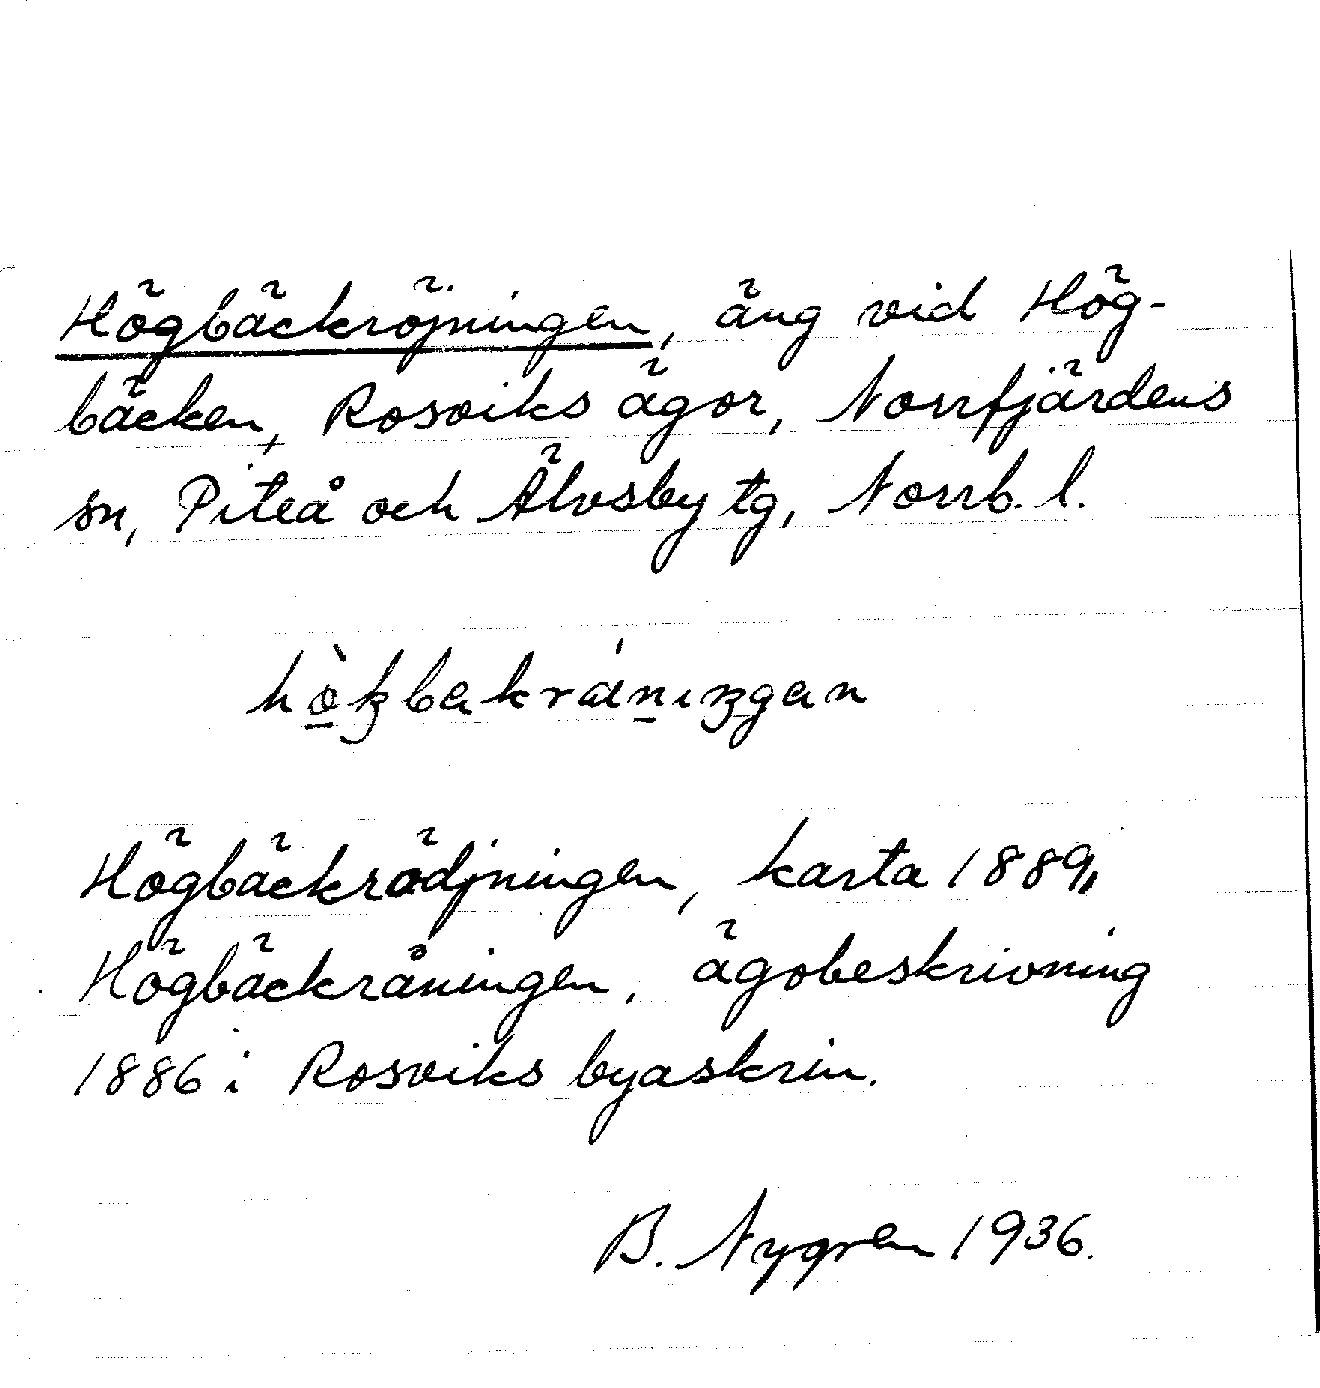 Högbäckröjningen, äng vid Hög-
bäcken, Rosviks ägor, Norrfjärdens
sn, Piteå och Älvsby tg, Norrb. l.
Högbäckrädjningen, karta 1889,
Högbäckråningen, ägobeskrivning
1886 i Rosviks byaskrin.
B. Nygren 1936.